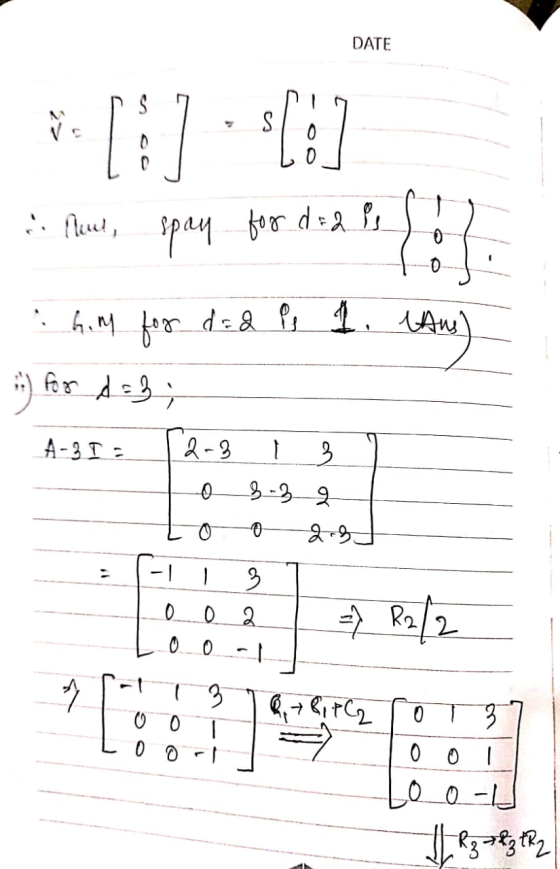 DATE
ṽ = [ S 0 0 ] = S [ 1 0 0 ]
∴ Thus, span for d=2 is { 1 0 0 }.
∴ G.M for d=2 is 1. (Ans)
ii) for d=3;
A-3I = [ 2-3 1 3
0 3-3 2
0 0 2-3 ]
= [ -1 1 3
0 0 2
0 0 -1 ] => R2/2
=> [ -1 1 3 0 0 1 0 0 -1 ] C1→C1+C2 => [ 0 1 3 0 0 1 0 0 -1 ]
⇓ R3→R3+R2